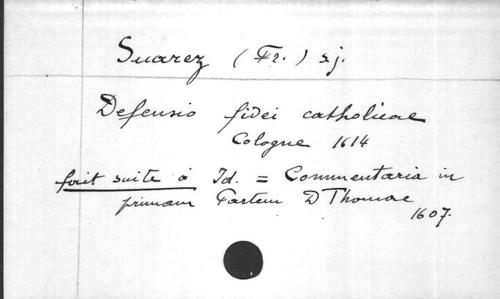 Suarez (Fr.) sj.
Defensio fidei catholicae
Cologne 1614
fait suite à Id. = Commentaria in
primam Partem D Thomae
1607.